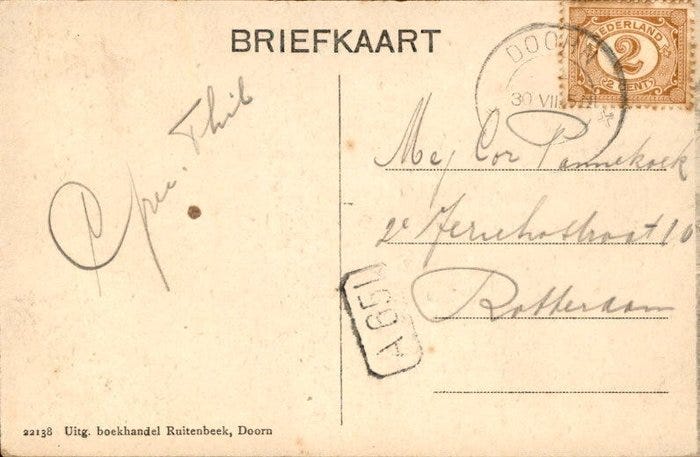 BRIEFKAART
NEDERLAND
2
2 CENT
DOORN
30 VII
Mej Cor Pannekoek
2e Jerichostraat 10
Rotterdam
A 651
Thil
22138 Uitg. boekhandel Ruitenbeek, Doorn